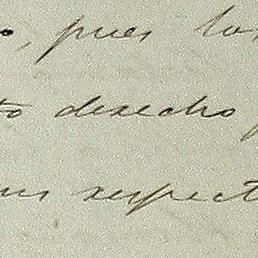 , pues los
to derecho
sus respect